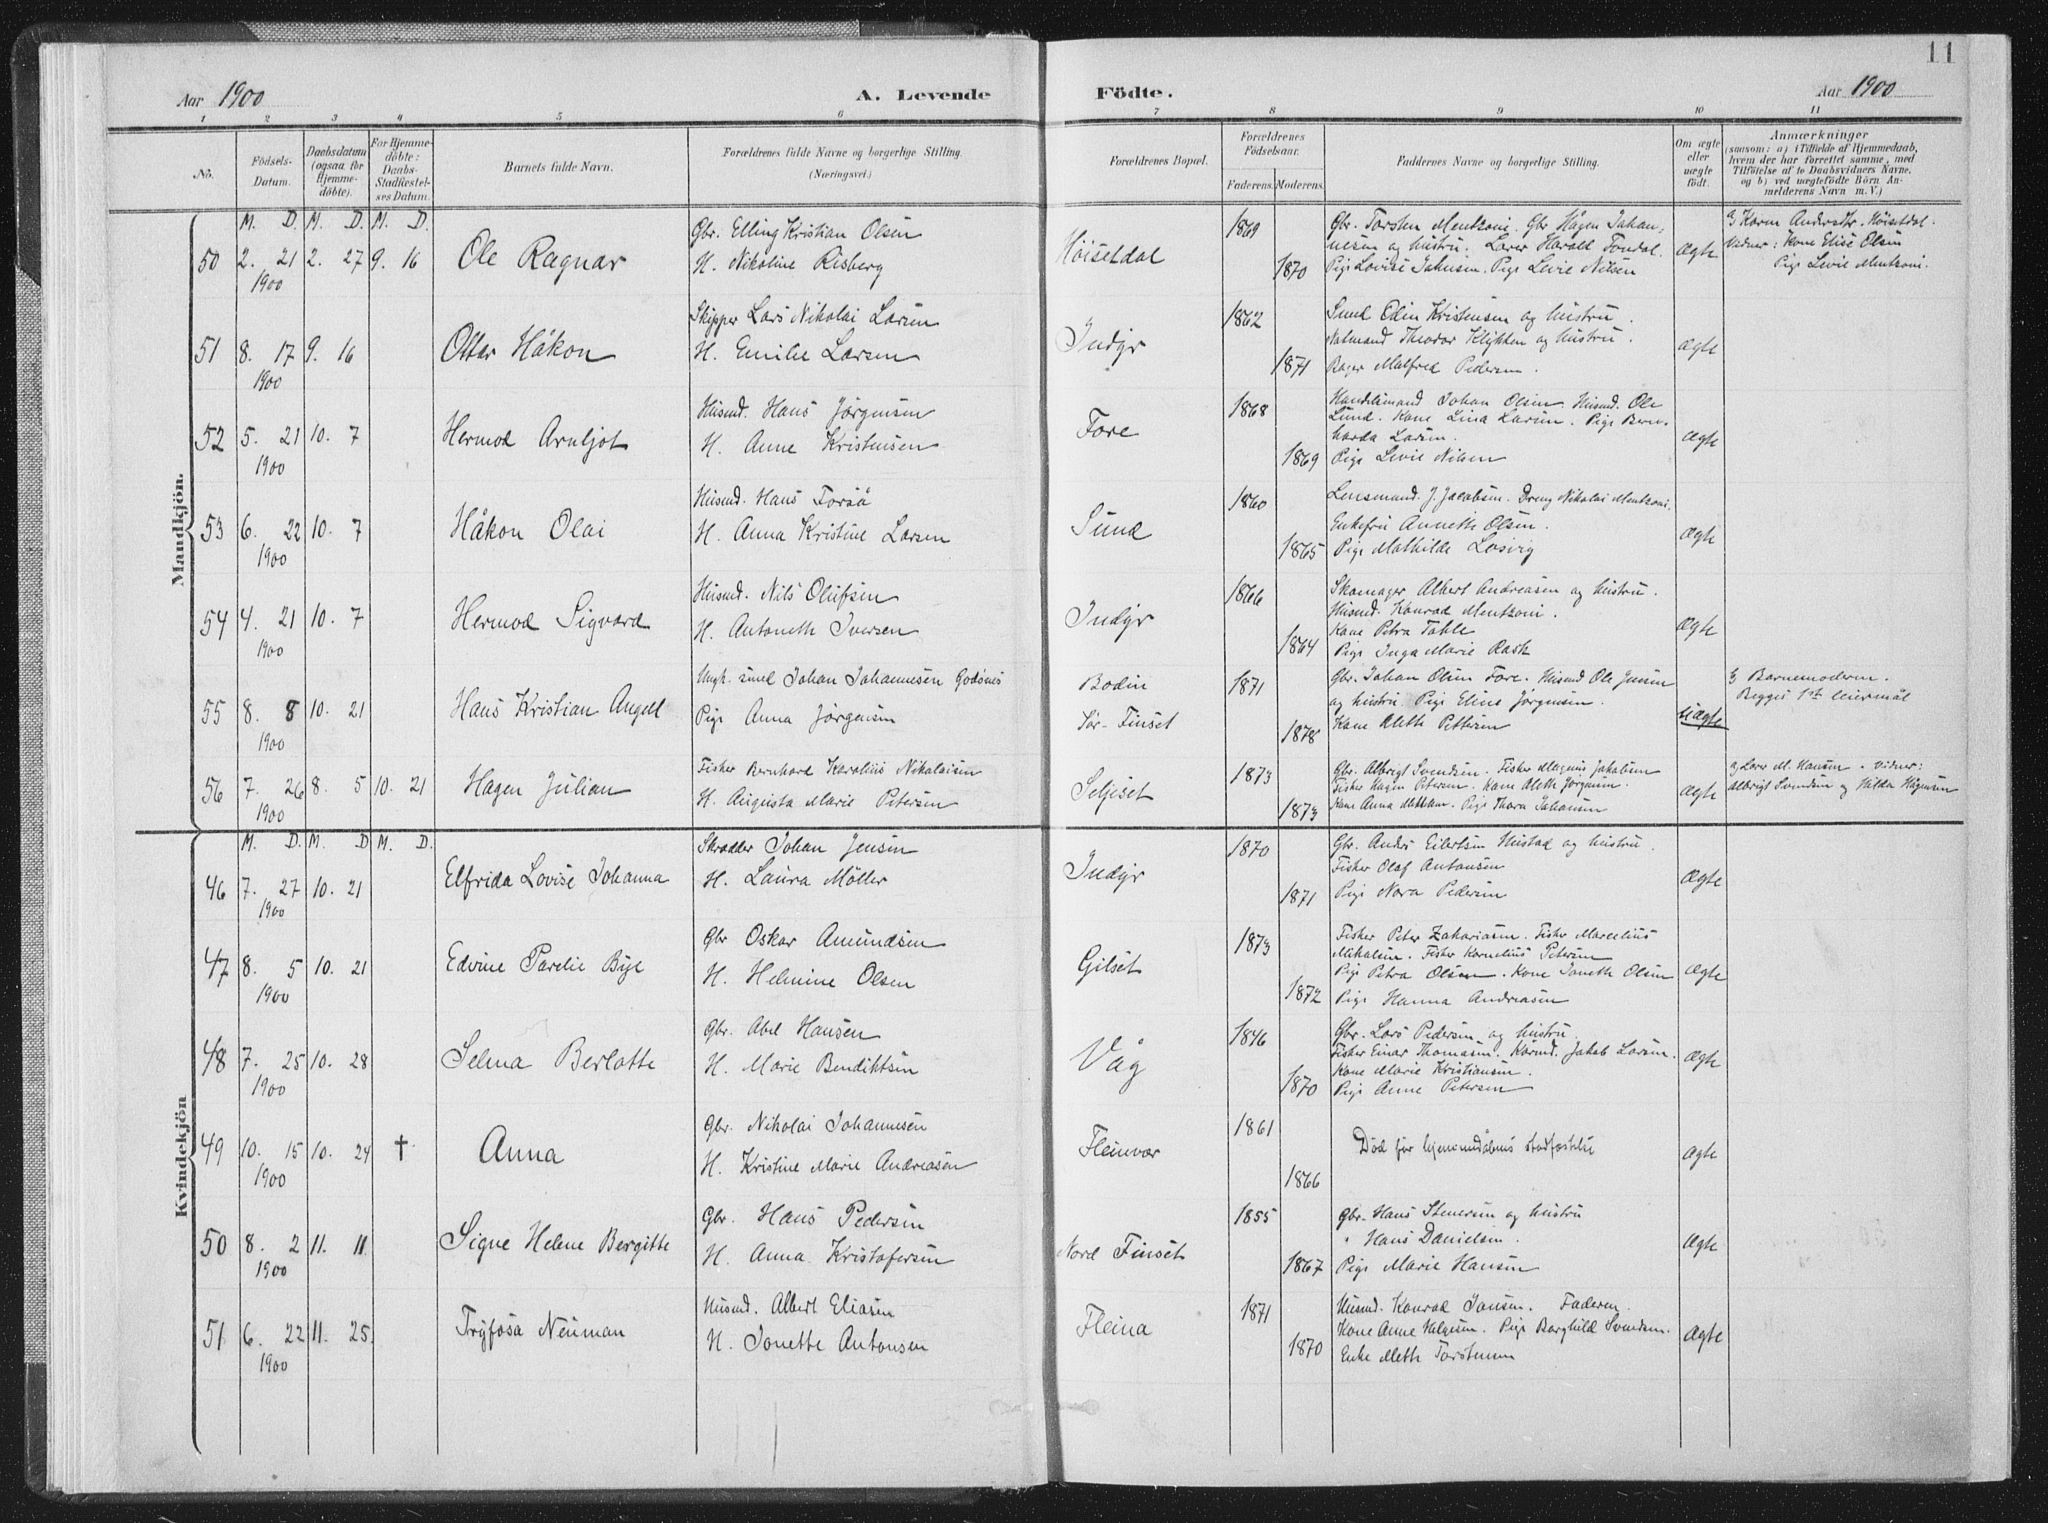 11
Aar 1900 A. Levende Födte. Aar 1900
1 2 3 4 5 6 7 8 9 10 11
No. Födsels-Datum. Daabsdatum (ogsaa for Hjemmedöbte). For Hjemmedöbte: Daabs-Stadfæstelses Datum. Barnets fulde Navn. Forældrenes fulde Navne og borgerlige Stilling. (Næringsvei.) Forældrenes Bopæl. Forældrenes Födselsaar. Faderens. Moderens. Faddernes Navne og borgerlige Stilling. Om ægte eller uægte födt. Anmærkninger (saasom: a) i Tilfælde af Hjemmedaab, hvem der har forrettet samme, med Tilföielse af to Daabsvidners Navne, og b) ved uægtefödte Börn Anmelderens Navn m. V.)
Mandkjön.
M. D. M. D. M. D.
Gbr. Elling Kristian Olsen 1869 Gbr. Torsten Mentzoni. Gbr Hågen Johan-
50 2. 21 2. 27 9. 16 Ole Ragnar Høisetdal nesen og hustru. Lærer Harald Tondal. ægte Vidner: Kone Elise Olsen
1900 H. Nikoline Risberg 1870 Pige Lovise Johnsen. Pige Levie Nilsen Pige Levie Mentzoni.
Skipper Lars Nikolai Larsen 1862 Sund Odin Kristensen og hustru.
51 8. 17 9. 16 Ottar Håkon Indyr Theodor Klykken og hustru. ægte
1900 H. Emilie Larsen 1871 Bager Malfred Pedersen.
Husmd. Hans Jørgensen 1868 Handelsmand Johan Olsen. Husmd. Ole
52 5. 21 10. 7 Hermod Arnljot Fore Lund. Kone Lina Larsen. Pige Bern-
harda Larsen. ægte
1900 H. Anne Kristensen 1869 Pige Levie Nilsen
Husmd. Hans Forså 1860 Lensmand. J. Jacobsen. Dreng Nikolai Mentzoni.
53 6. 22 10. 7 Håkon Olai Sund Enkefru Anneth Olsen. ægte
1900 H. Anna Kristine Larsen 1865 Pige Mathilde Losvig
Husmd. Nils Olufsen 1866 Skomager Albert Andreasen og hustru.
54 4. 21 10. 7 Hermod Sigvard Indyr Husmd. Konrad Mentzoni. ægte
Kone Petra Table
1900 H. Antoneth Iversen 1864 Pige Inga Marie Rask
Ungk. Johan Johannesen Godønes Bodin 1871 Gbr. Johan Olsen Fore. Husmd Ole Jensen Barnemoderen.
55 8. 8 10. 21 Hans Kristian Angell og hustru. Pige Eline Jørgensen. uægte Begges 1ste leiermål
1900 Pige Anna Jørgensen Sør-Finset 1878 Kone Aleth Pettersen
Fisker Bernhard Karolius Nikolaisen 1873 Gbr. Albrigt Svendsen. Fisker Magnus Jakobsen Lars M. Hansen. Vidner:
56 7. 26 8. 5 10. 21 Hagen Julian Seljeset Fisker Hagen Petersen. Kone Aleth Jørgensen. ægte Albrigt Svendsen og Valda Hågensen
1900 H. Augusta Marie Petersen 1873 Kone Anna . Pige Thora Johansen
Kvindekjön
M. D. M. D M. D.
Skrædder Johan Jensen 1870 Gbr. Anders Eilertsen Hustad og hustru.
46 7. 27 10. 21 Elfrida Lovise Johanna Indyr Fisker Olaf Antonsen ægte
1900 H. Laura Möller 1871 Pige Nora Pedersen
Gbr Oskar Amundsen 1873 Fisker Peter Zakariasen. Fisker Marcelius
47 8. 5 10. 21 Edvine Parelie Bye Gilset Mikalsen. Fisker Kornelius Petersen
Pige Petra Olsen. Kone Joneth Olsen ægte
1900 H. Helmine Olsen 1872 Pige Hanna Andreasen
Gbr. Abel Hansen 1846 Gbr. Lars Pedersen og hustru
48 7. 25 10. 28 Selma Berlotte Våg Fisker Einar Thomasen. Jakob Larsen. ægte
Kone Marie Kristiansen.
1900 H. Marie Bendiktsen 1870 Pige Anne Petersen
Gbr. Nikolai Johannesen 1861
49 10. 15 10. 24 † Anna Fleinvær Død før hjemmedåbens stadfæstelse ægte
1900 H. Kristine Marie Andreasen 1866
Gbr. Hans Pedersen 1855 Gbr. Hans Stenersen og hustru
50 8. 2 11. 11. Signe Helene Bergitte Nord Finset " Hans Danielsen. ægte
1900 H. Anna Kristofersen 1867 Pige Marie Hansen
Husmd. Albert Eliasen 1871 Husmd. Konrad Jansen. Faderen.
51 6. 22 11. 25. Tryfosa Neuman Fleina Kone Anne Helgesen. Pige Borghild Svendsen. ægte
1900 H. Jonette Antonsen 1870 Enke Meth Torstensen